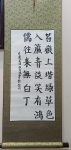 苔痕上階綠草色
入簾青談笑有鴻
儒往來無白丁